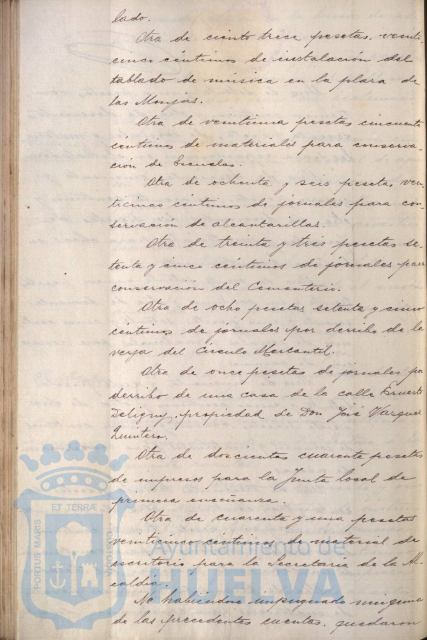 lado.
Otra de ciento trece pesetas, veinti-
cinco céntimos de instalación del
tablado de música en la plaza de
las Monjas.
Otra de veintiuna pesetas cincuenta
centimos de materiales para conserva-
ción de Escuelas.
Otra de ochenta y seis pesetas, vein-
ticinco centimos de jornales para con-
servación de alcantarillas.
Otra de treinta y tres pesetas se-
tenta y cinco centimos de jornales para
conservación del Cementerio.
Otra de ocho pesetas setenta y cinco
céntimos de jornales por derribo de la
verja del Círculo Mercantil.
Otra de once pesetas de jornales por
derribo de una casa de la calle Ernesto
Deligny, propiedad de Don José Vazquez
Quintero.
Otra de doscientas cuarenta pesetas
de impresos para la Junta local de
primera enseñanza.
Otra de cuarenta y una pesetas
veinticinco centimos de material de
escritorio para la Secretaria de la Al-
caldía.
No habiendose impugnado ninguna
de las precedentes cuentas, quedaron
PORTUS MARIS
ET TERRÆ
CUSTODIA
Ayuntamiento de
HUELVA